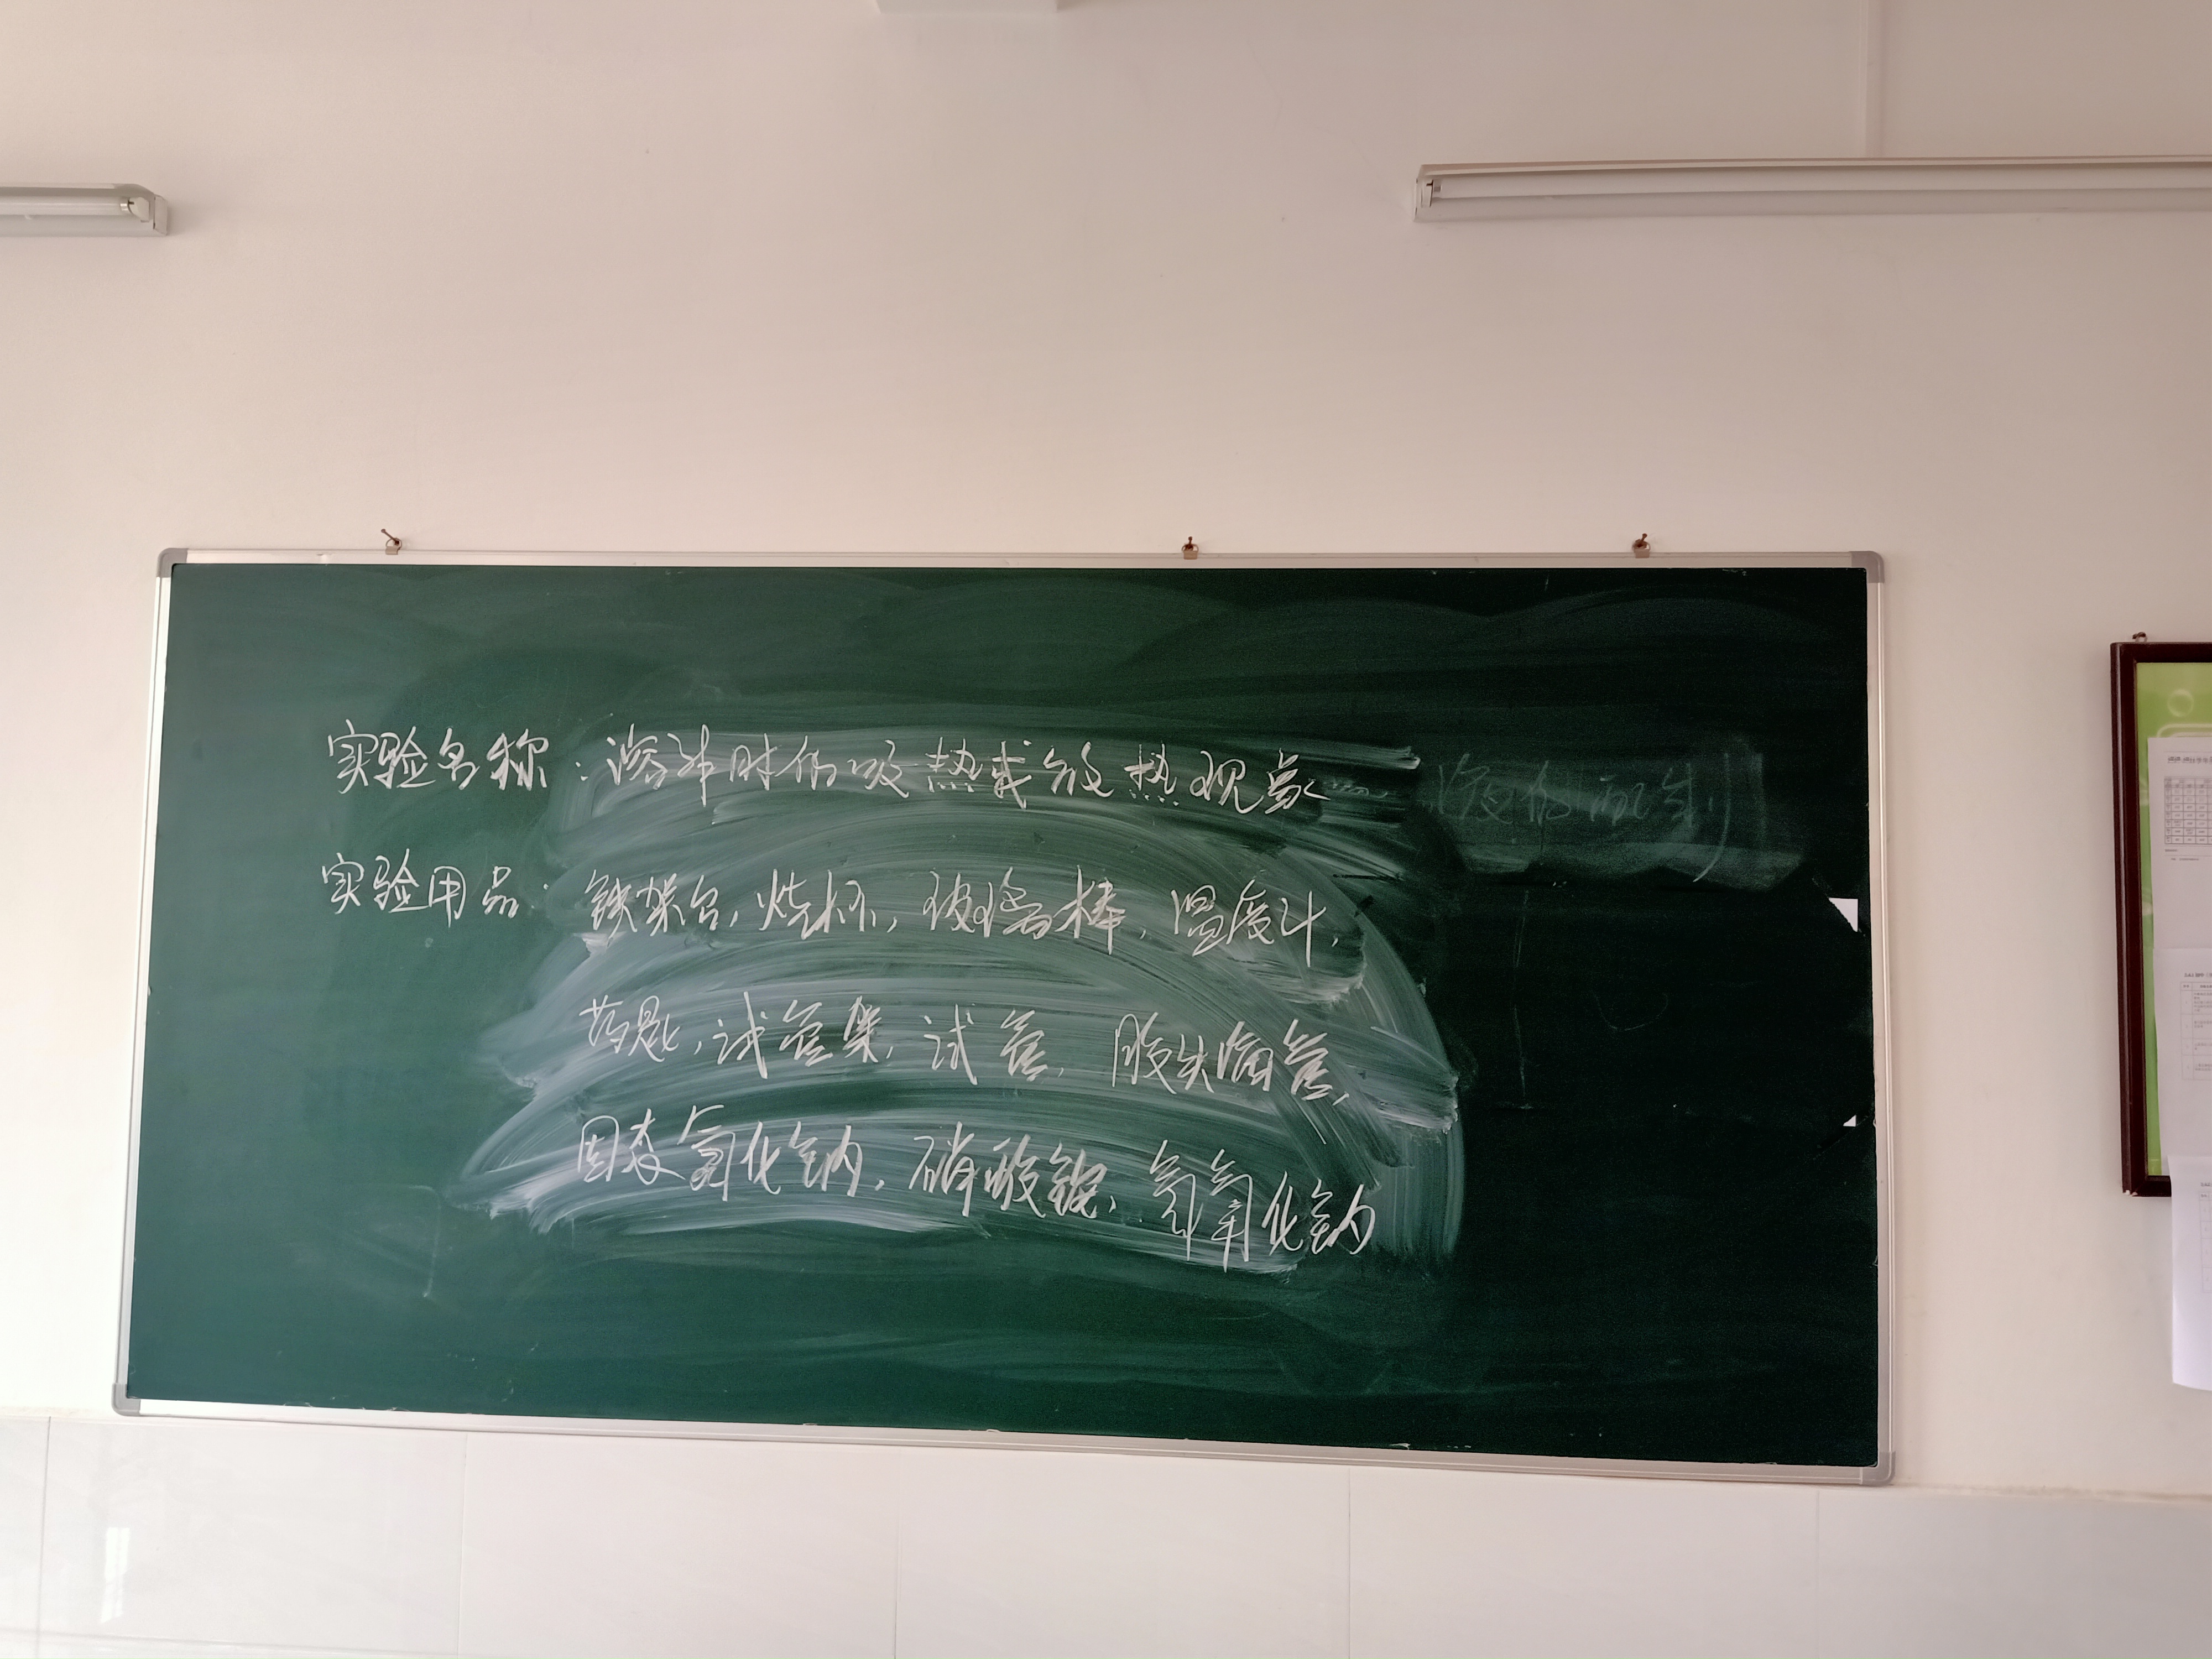 实验名称:溶解时的吸热或放热现象
实验用品:铁架台,烧杯,玻璃棒,温度计,
药匙,试管架,试管,胶头滴管,
固态氯化钠,硝酸铵,氢氧化钠
液的配制